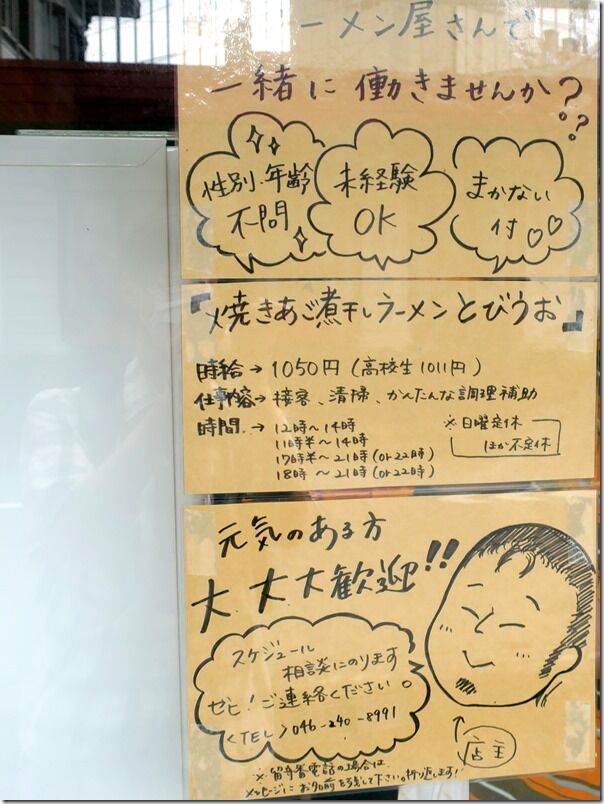 ーメン屋さんで
一緒に働きませんか???
性別・年齢
不問
未経験
OK
まかない
付♡♡
『焼きあご煮干しラーメンとびうお』
時給→1050円(高校生1011円)
仕事内容→接客、清掃、かんたんな調理補助
時間→12時〜14時
11時半〜14時
17時半〜21時(or22時)
18時〜21時(or22時)
※日曜定休
ほか不定休
元気のある方
大大大歓迎!!
スケジュール
相談にのります
ゼヒ!ご連絡ください。
<TEL>046-240-8991
店主
※留守番電話の場合は
メッセージにお名前を残して下さい。折り返します!